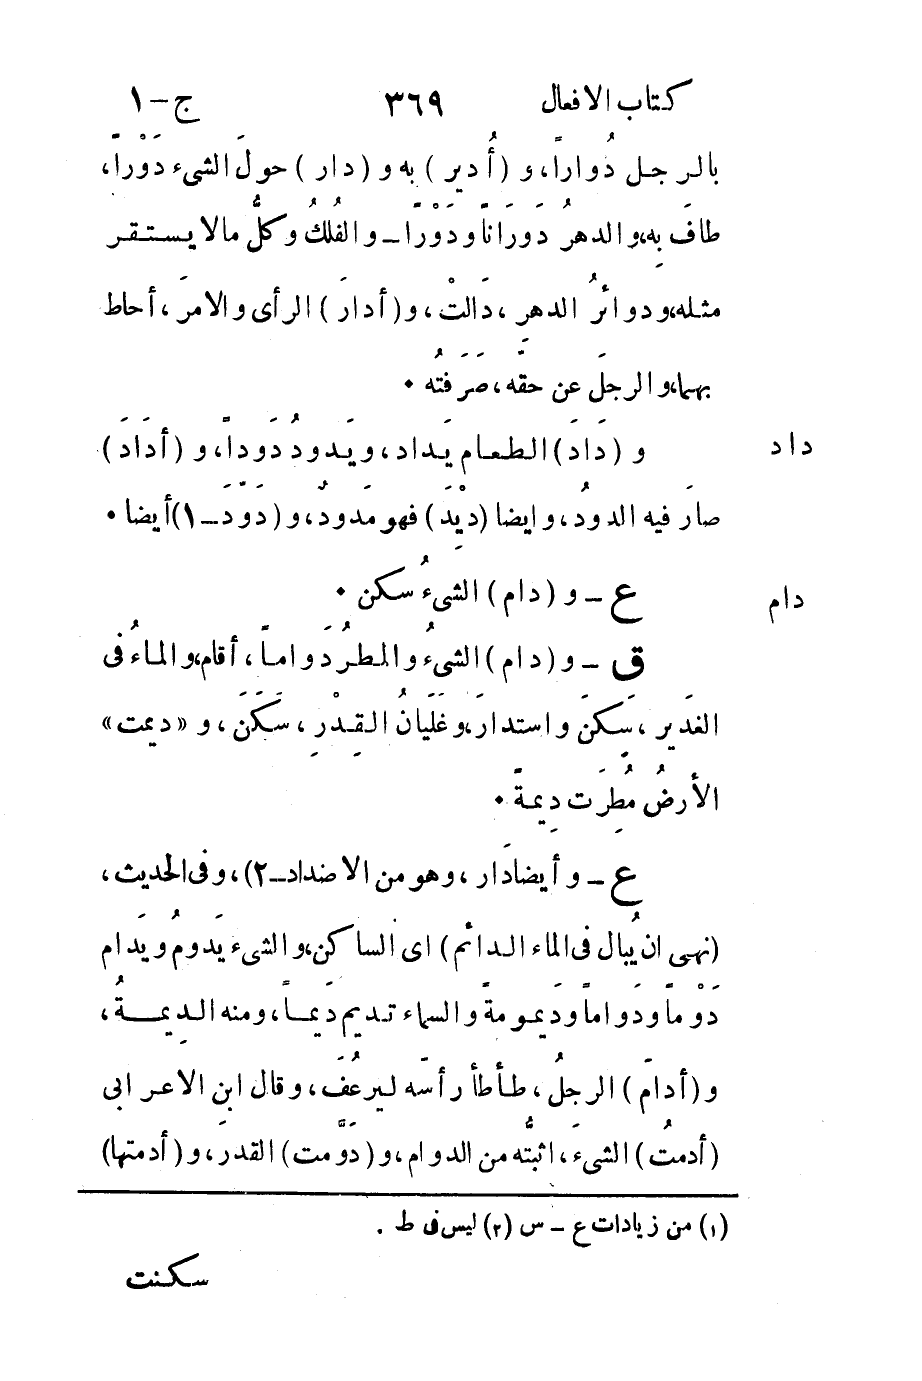 كتاب الافعال ٣٦٩ ج-١
بالرجل دُواراً، و (أُدير) به و (دار) حولَ الشىء دَوْراً،
طافَ به، والدهرُ دَوَراناً ودَوْراً - والفُلكُ وكلُّ مالا يستقر
مثله، ودوائرُ الدهرِ، دَالتْ، و(أدارَ) الرأى والامرَ، أحاط
بهما، والرجلَ عن حقِّه، صَرَفتُه •
داد و (دَادَ) الطعام يَداد، ويَدودُ دَوداً، و (أدَادَ)
صارَ فيه الدودُ، وايضا (دِيْدَ) فهو مَدودٌ، و (دَوَّدَ - ١) أيضا •
دام ع - و (دام) الشىءُ سكن •
ق - و (دام) الشىءُ والمطرُ دَواماً، أقام، والماءُ فى
الغَدير، سَكنَ واستدارَ، وغَلَيانُ القِدْرِ، سَكَنَ، و «ديمت»
الأرضُ مُطِرَت دِيمةً •
ع - و أيضا دَار، وهو من الاضداد-٢)، وفى الحديث،
(نهى ان يُبال فى الماء الدائم) اى الساكن، والشىء يَدومُ ويَدام
دَوْماً ودَواماً ودَيمومةً والسماء تديم دَيماً، ومنه الدِيمةُ،
و (أدامَ) الرجلُ، طأطأ رأسَه ليرعُفَ، وقال ابن الاعرابى
(أدمتُ) الشىءَ، اثبتُّه من الدوام، و (دَوَّمت) القدرَ، و (أدمتها)
(١) من زيادات ع - س (٢) ليس فى ط .
سكنت